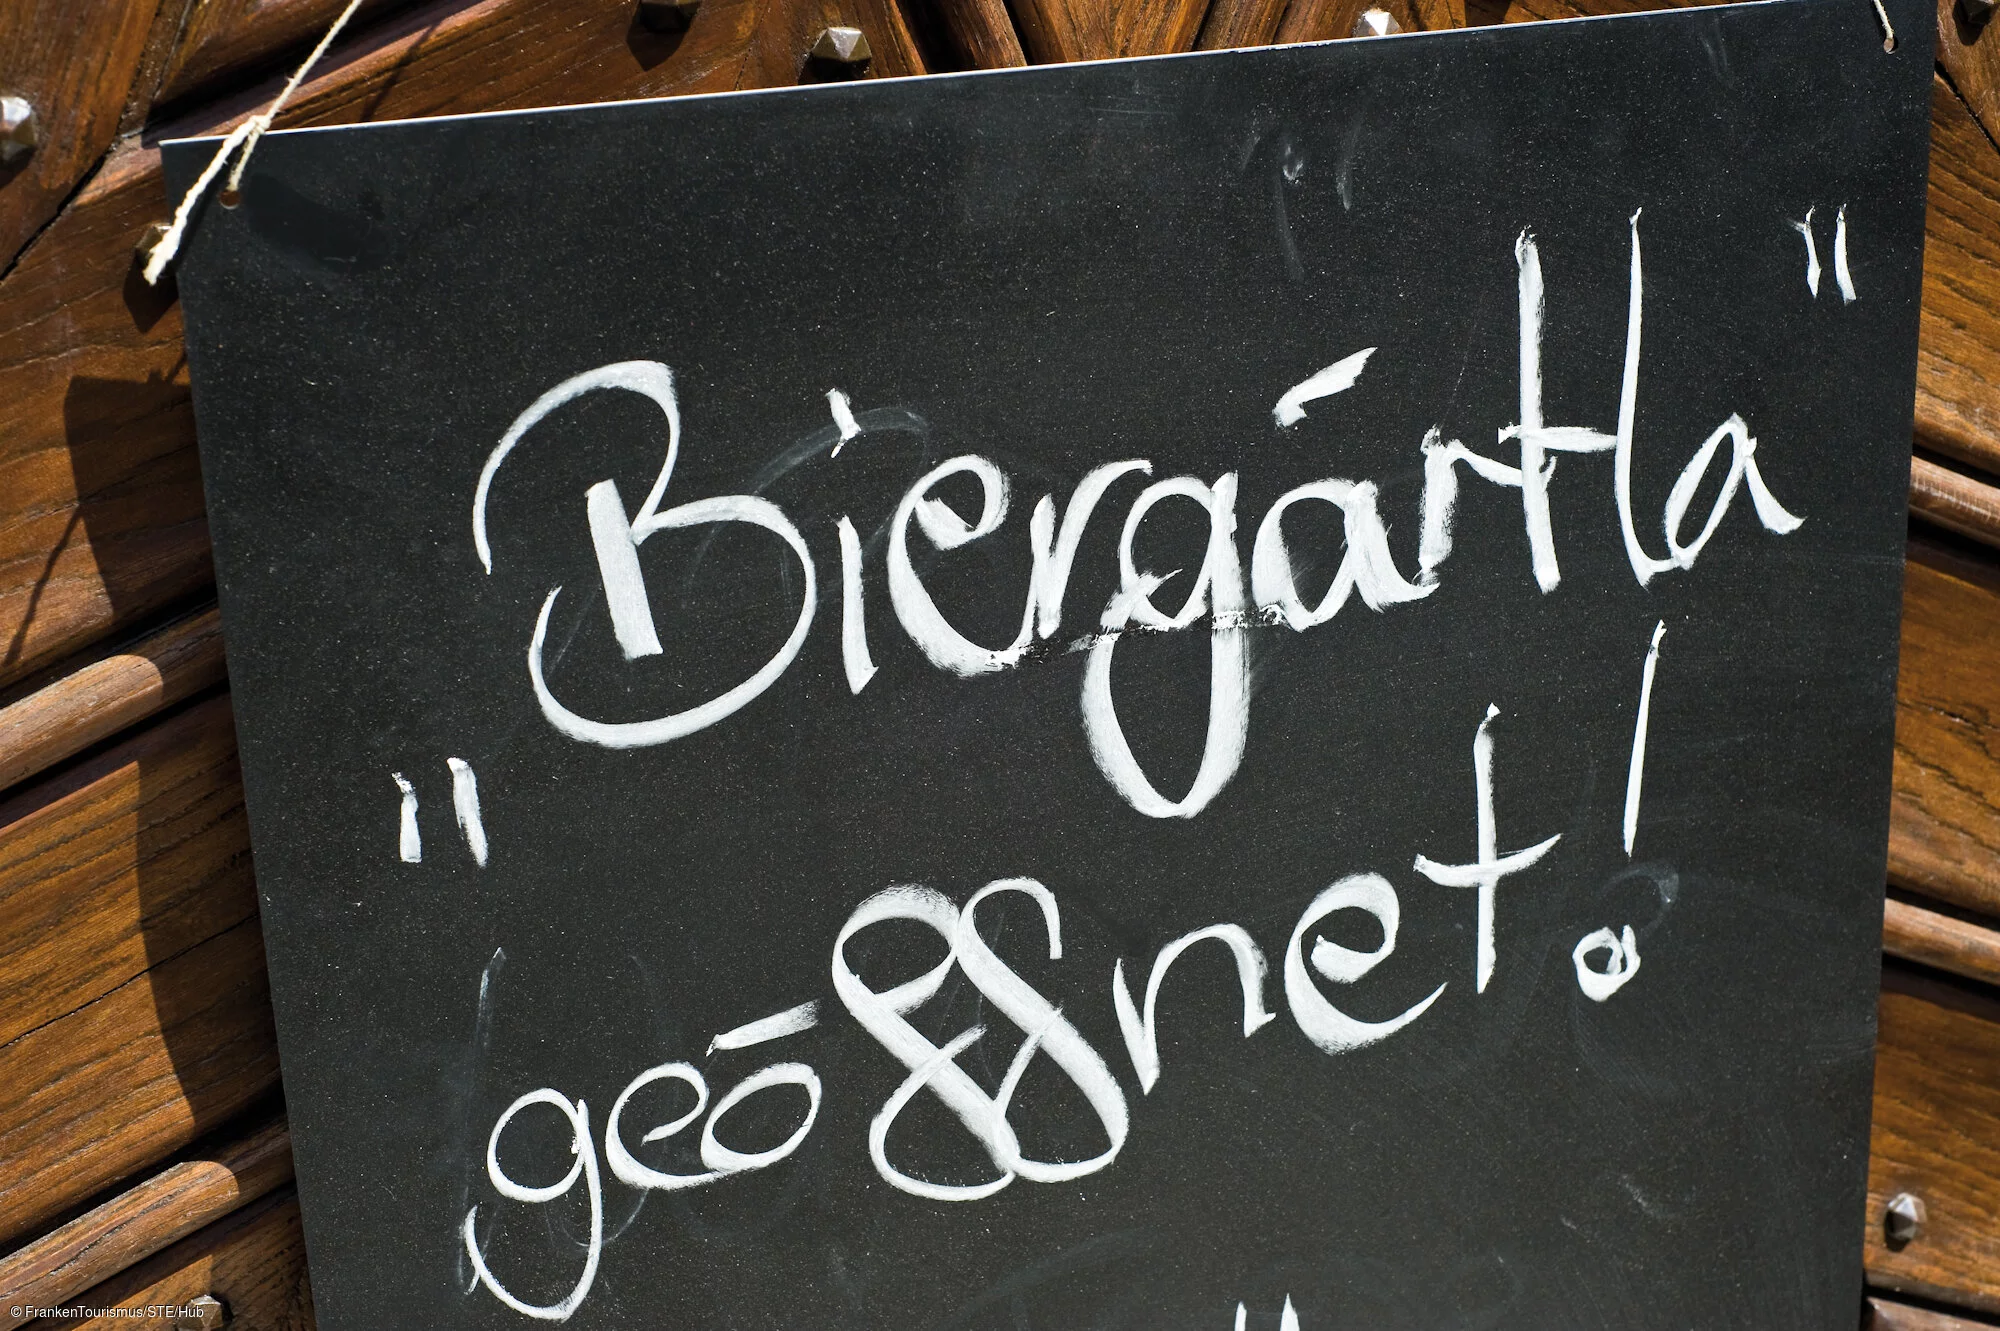 „Biergärtla"
geöffnet!
© FrankenTourismus/STE/Hub